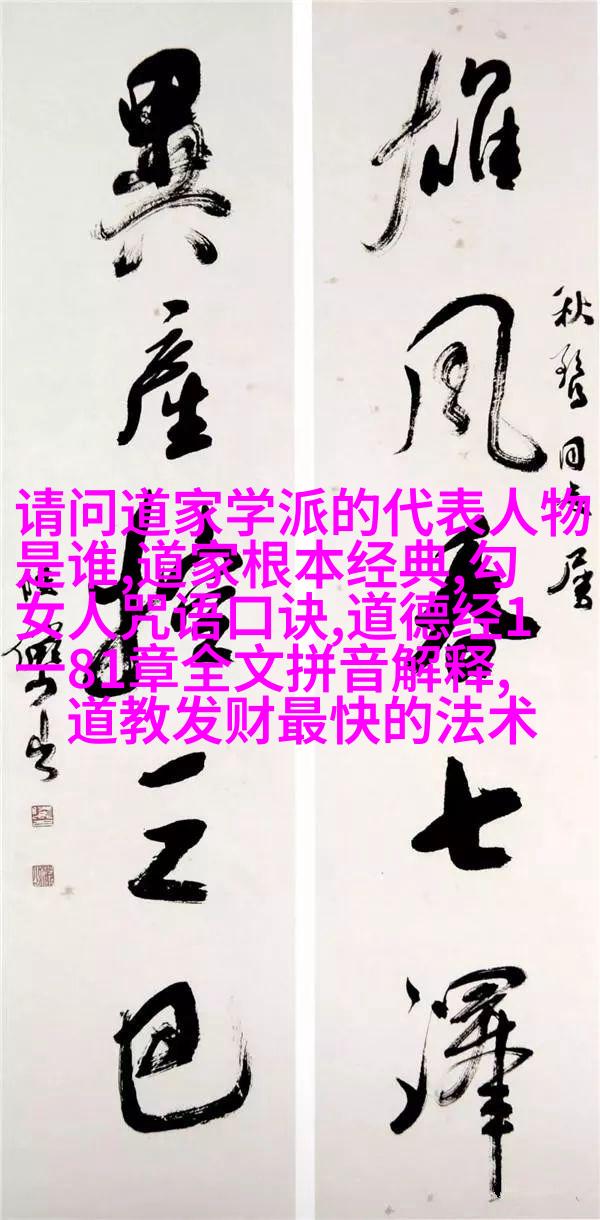 雄風七澤
異產三巴
请问道家学派的代表人物
是谁,道家根本经典,勾
女人咒语口诀,道德经1
一81章全文拼音解释,
道教发财最快的法术